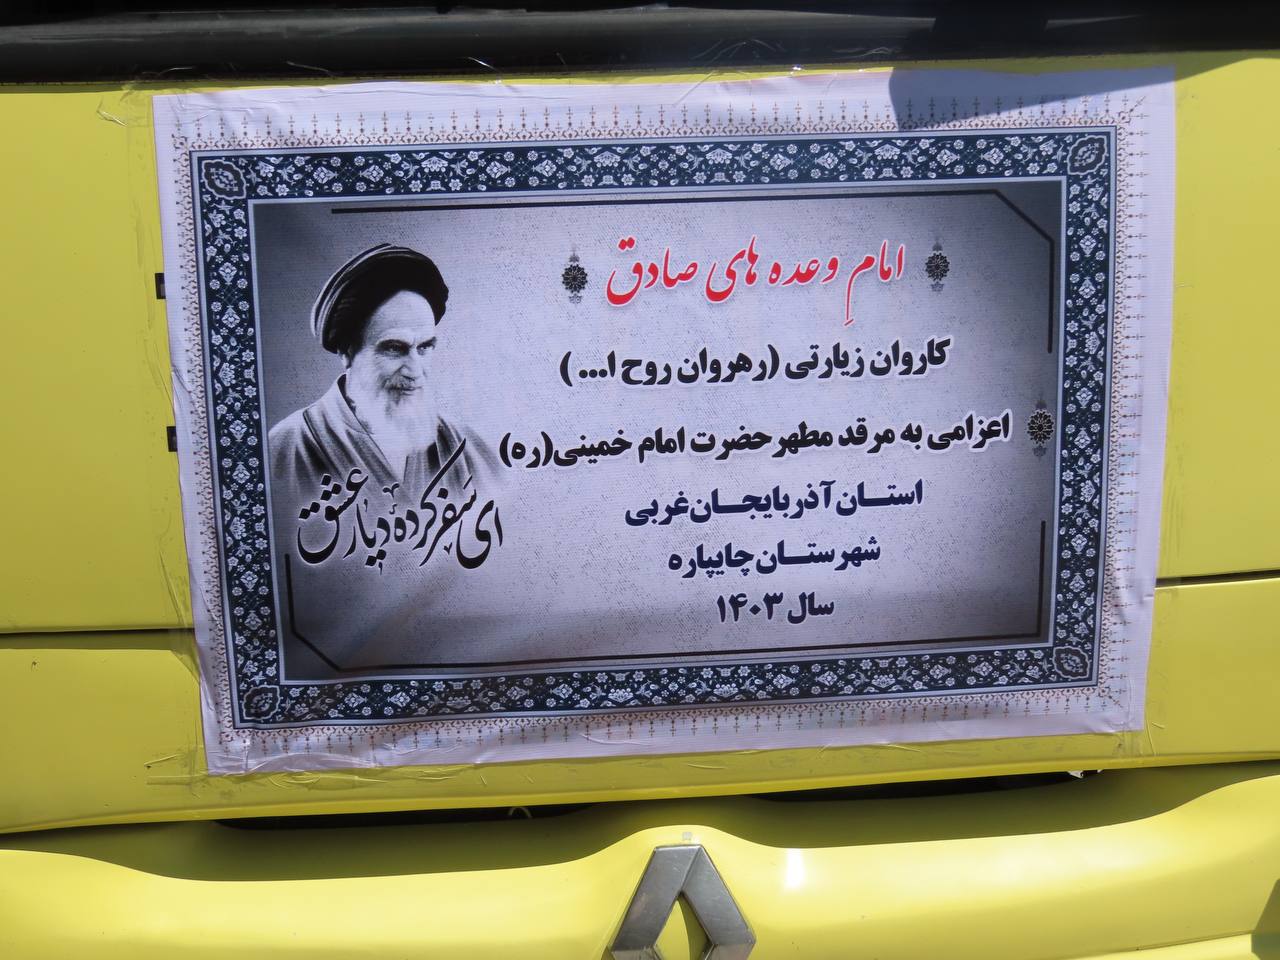 امامِ وعده های صادق
کاروان زیارتی (رهروان روح ا...)
اعزامی به مرقد مطهر حضرت امام خمینی(ره)
استان آذربایجان غربی
شهرستان چایپاره
سال ۱۴۰۳
ای سَفر کرده دیار عشق